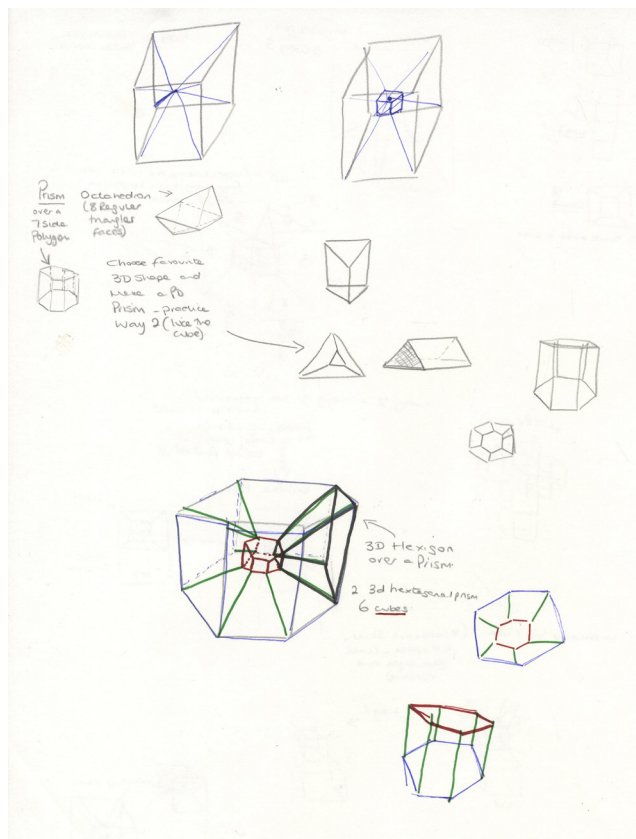 Prism
over a
7 side
Polygon
Octahedron
(8 Regular
triangler
faces)
Choose favourite
3D Shape and
make a
Prism - practice
way 2 (like the
cube)
3D Hexigon
over a Prism
2 3d hextagonal prism
6 cubes